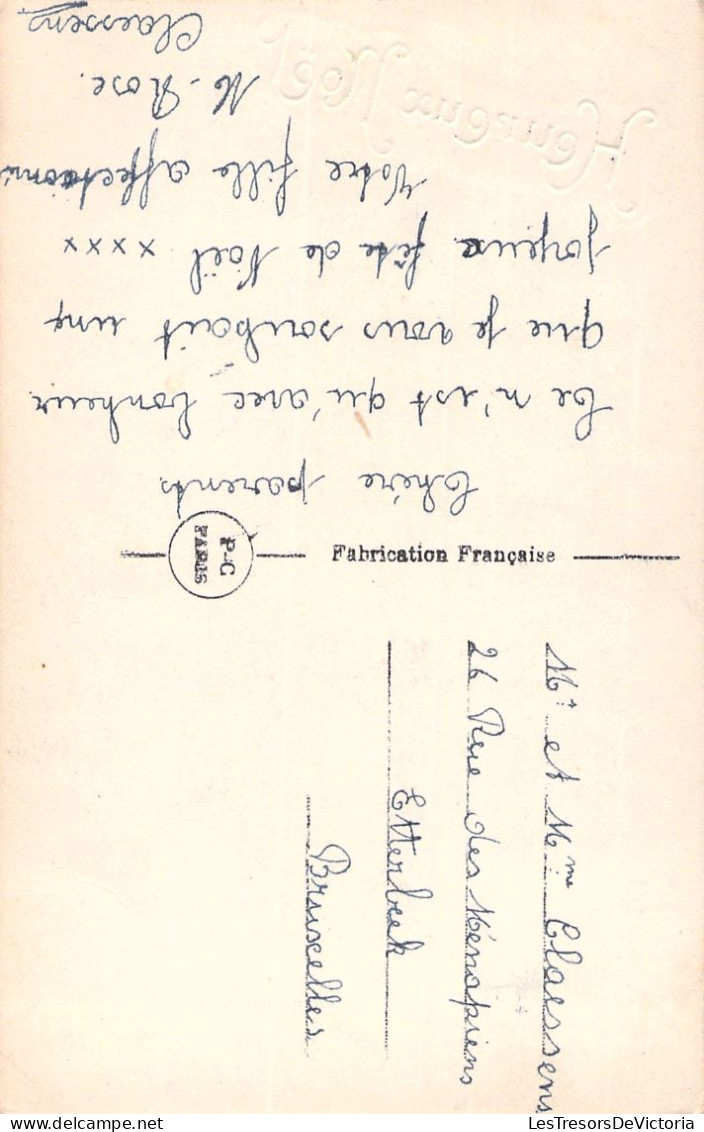 Chère parents.
Ce n'est qu'avec bonheur
que je vous souhait une
joyeux fête de Noël xxxx
Votre fille affectionné
M-Rose.
Claessens
Heureux Noël
Fabrication Française
P-C
PARIS
Mr et Mme Claessens
26 Rue des Ménapiens
Etterbeek
Bruxelles
LesTresorsDeVictoria